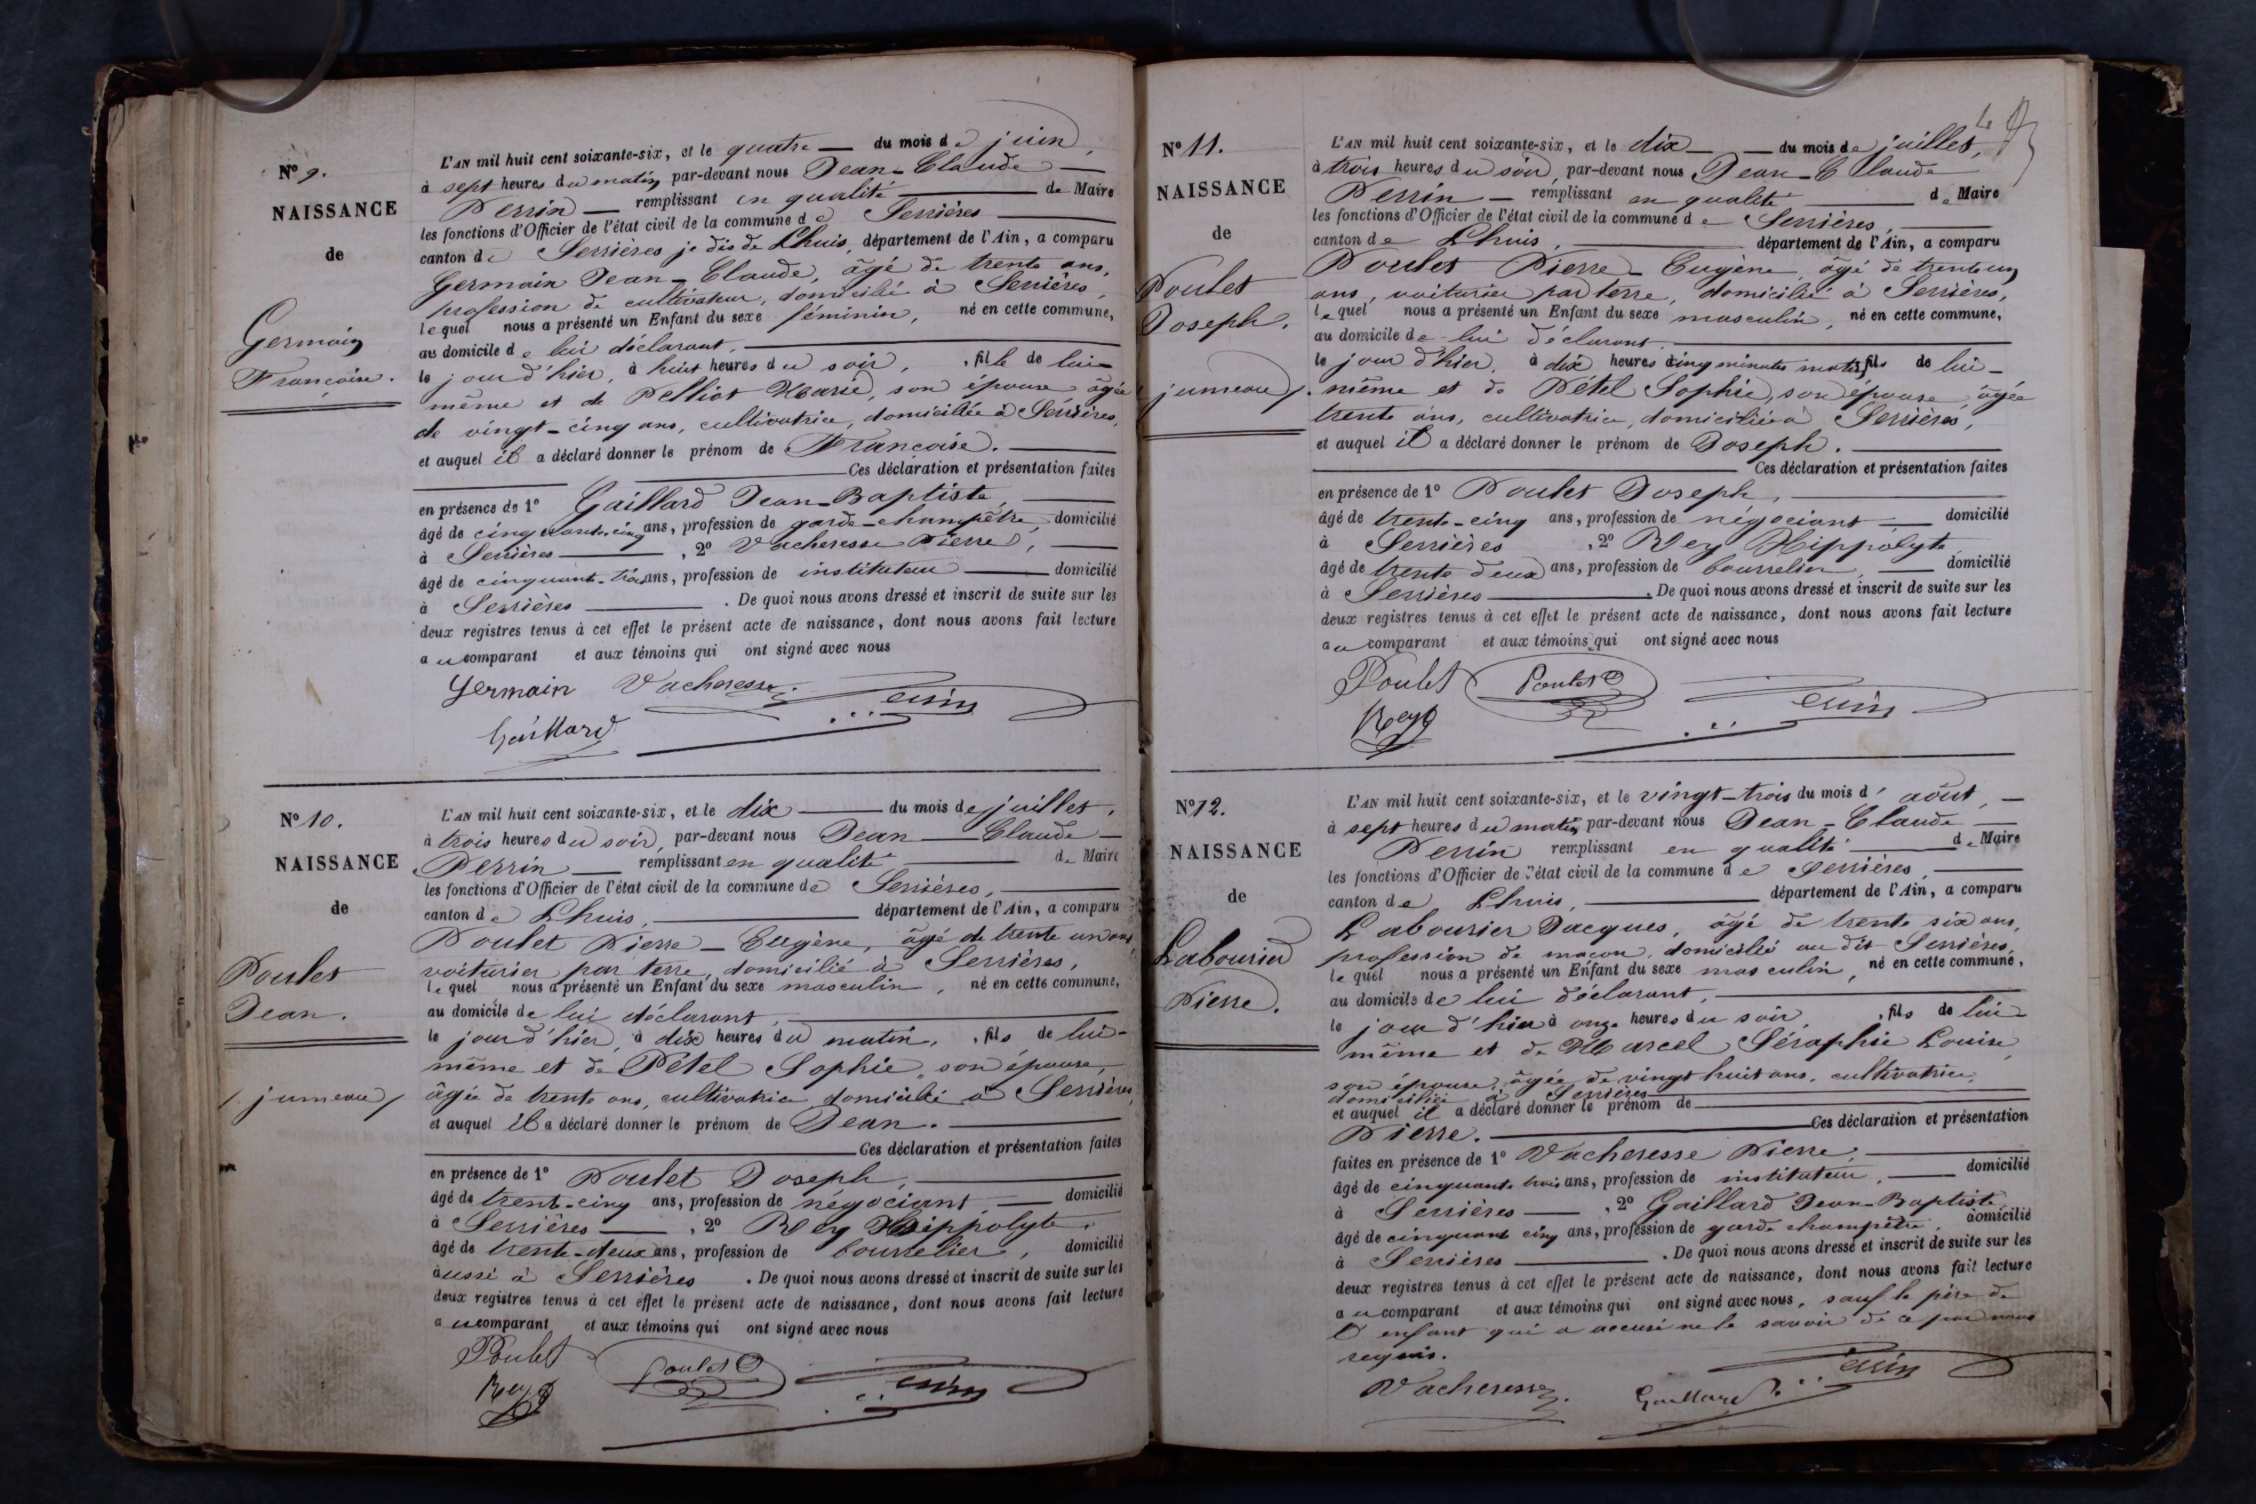 N° 9.
NAISSANCE
de
Germain
Françoise.
L'AN mil huit cent soixante-six, et le quatre du mois de juin,
à sept heures du matin, par-devant nous Jean-Claude
Perrin remplissant en qualité de Maire
les fonctions d'Officier de l'état civil de la commune de Serrières
canton de Serrières je dis de Lhuis, département de l'Ain, a comparu
Germain Jean-Claude, âgé de trente ans,
profession de cultivateur, domicilié à Serrières,
lequel nous a présenté un Enfant du sexe féminin, né en cette commune,
au domicile de lui déclarant,
le jour d'hier, à huit heures du soir, fille de lui-
même et de Pelliot Marie, son épouse âgée
de vingt-cinq ans, cultivatrice, domiciliée à Serrières,
et auquel il a déclaré donner le prénom de Françoise.
Ces déclaration et présentation faites
en présence de 1° Gaillard Jean-Baptiste,
âgé de cinquante-cinq ans, profession de garde-champêtre, domicilié
à Serrières, 2° Vacheresse Pierre,
âgé de cinquante-trois ans, profession de instituteur domicilié
à Serrières. De quoi nous avons dressé et inscrit de suite sur les
deux registres tenus à cet effet le présent acte de naissance, dont nous avons fait lecture
au comparant et aux témoins qui ont signé avec nous
Germain Vacheresse Perrin
Gaillard
N° 10.
NAISSANCE
de
Poulet
Jean.
/ jumeau /
L'AN mil huit cent soixante-six, et le dix du mois de juillet,
à trois heures du soir, par-devant nous Jean Claude
Perrin remplissant en qualité de Maire
les fonctions d'Officier de l'état civil de la commune de Serrières,
canton de Lhuis, département de l'Ain, a comparu
Poulet Pierre-Eugène, âgé de trente un ans,
voiturier par terre, domicilié à Serrières,
lequel nous a présenté un Enfant du sexe masculin, né en cette commune,
au domicile de lui déclarant,
le jour d'hier, à dix heures du matin, fils de lui-
même et de Pétel Sophie, son épouse,
âgée de trente ans, cultivatrice domicilié à Serrières,
et auquel il a déclaré donner le prénom de Jean.
Ces déclaration et présentation faites
en présence de 1° Poulet Joseph,
âgé de trente-cinq ans, profession de négociant, domicilié
à Serrières, 2° Rey Hippolyte,
âgé de trente-deux ans, profession de bourrelier, domicilié
aussi à Serrières. De quoi nous avons dressé et inscrit de suite sur les
deux registres tenus à cet effet le présent acte de naissance, dont nous avons fait lecture
au comparant et aux témoins qui ont signé avec nous
Poulet Poulet Perrin
Rey
N° 11.
NAISSANCE
de
Poulet
Joseph.
/ jumeau /
L'AN mil huit cent soixante-six, et le dix du mois de juillet,
à trois heures du soir, par-devant nous Jean-Claude
Perrin remplissant en qualité de Maire
les fonctions d'Officier de l'état civil de la commune de Serrières,
canton de Lhuis, département de l'Ain, a comparu
Poulet Pierre-Eugène, âgé de trente un
ans, voiturier par terre, domicilié à Serrières,
lequel nous a présenté un Enfant du sexe masculin, né en cette commune,
au domicile de lui déclarant,
le jour d'hier, à dix heures cinq minutes matin, fils de lui-
même et de Pétel Sophie, son épouse âgée
trente ans, cultivatrice, domiciliée à Serrières,
et auquel il a déclaré donner le prénom de Joseph.
Ces déclaration et présentation faites
en présence de 1° Poulet Joseph,
âgé de trente-cinq ans, profession de négociant domicilié
à Serrières, 2° Rey Hippolyte
âgé de trente deux ans, profession de bourrelier, domicilié
à Serrières. De quoi nous avons dressé et inscrit de suite sur les
deux registres tenus à cet effet le présent acte de naissance, dont nous avons fait lecture
au comparant et aux témoins qui ont signé avec nous
Poulet Poulet Perrin
Rey
N° 12.
NAISSANCE
de
Labourier
Pierre.
L'AN mil huit cent soixante-six, et le vingt-trois du mois d'août,
à sept heures du matin, par-devant nous Jean-Claude
Perrin remplissant en qualité de Maire
les fonctions d'Officier de l'état civil de la commune de Serrières,
canton de Lhuis, département de l'Ain, a comparu
Labourier Jacques, âgé de trente six ans,
profession de maçon, domicilié au dit Serrières,
lequel nous a présenté un Enfant du sexe masculin, né en cette commune,
au domicile de lui déclarant,
le jour d'hier à onze heures du soir, fils de lui-
même et de Marcel Séraphie Louise,
son épouse, âgée de vingt huit ans, cultivatrice,
domiciliée à Serrières
et auquel il a déclaré donner le prénom de
Pierre. Ces déclaration et présentation
faites en présence de 1° Vacheresse Pierre,
âgé de cinquante trois ans, profession de instituteur, domicilié
à Serrières, 2° Gaillard Jean-Baptiste,
âgé de cinquante cinq ans, profession de garde champêtre, domicilié
à Serrières. De quoi nous avons dressé et inscrit de suite sur les
deux registres tenus à cet effet le présent acte de naissance, dont nous avons fait lecture
au comparant et aux témoins qui ont signé avec nous, sauf le père de
l'enfant qui a accusé ne le savoir de ce par nous
requis.
Vacheresse Gaillard Perrin